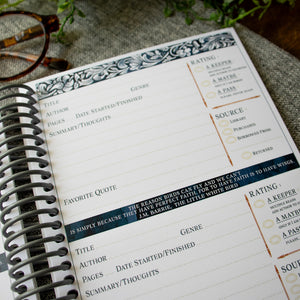 Title
Genre
Author
Pages
Date Started/Finished
Summary/Thoughts
Favorite Quote
Rating
A Keeper
A Maybe
A Pass
Source
Library
Purchased
Borrowed From
Returned
The reason birds can fly and we can't
is simply because they have perfect faith, for to have faith is to have wings.
J.M. Barrie, The Little White Bird
Title
Genre
Author
Pages
Date Started/Finished
Summary/Thoughts
Rating
A Keeper
A Maybe
A Pass
Source
Library